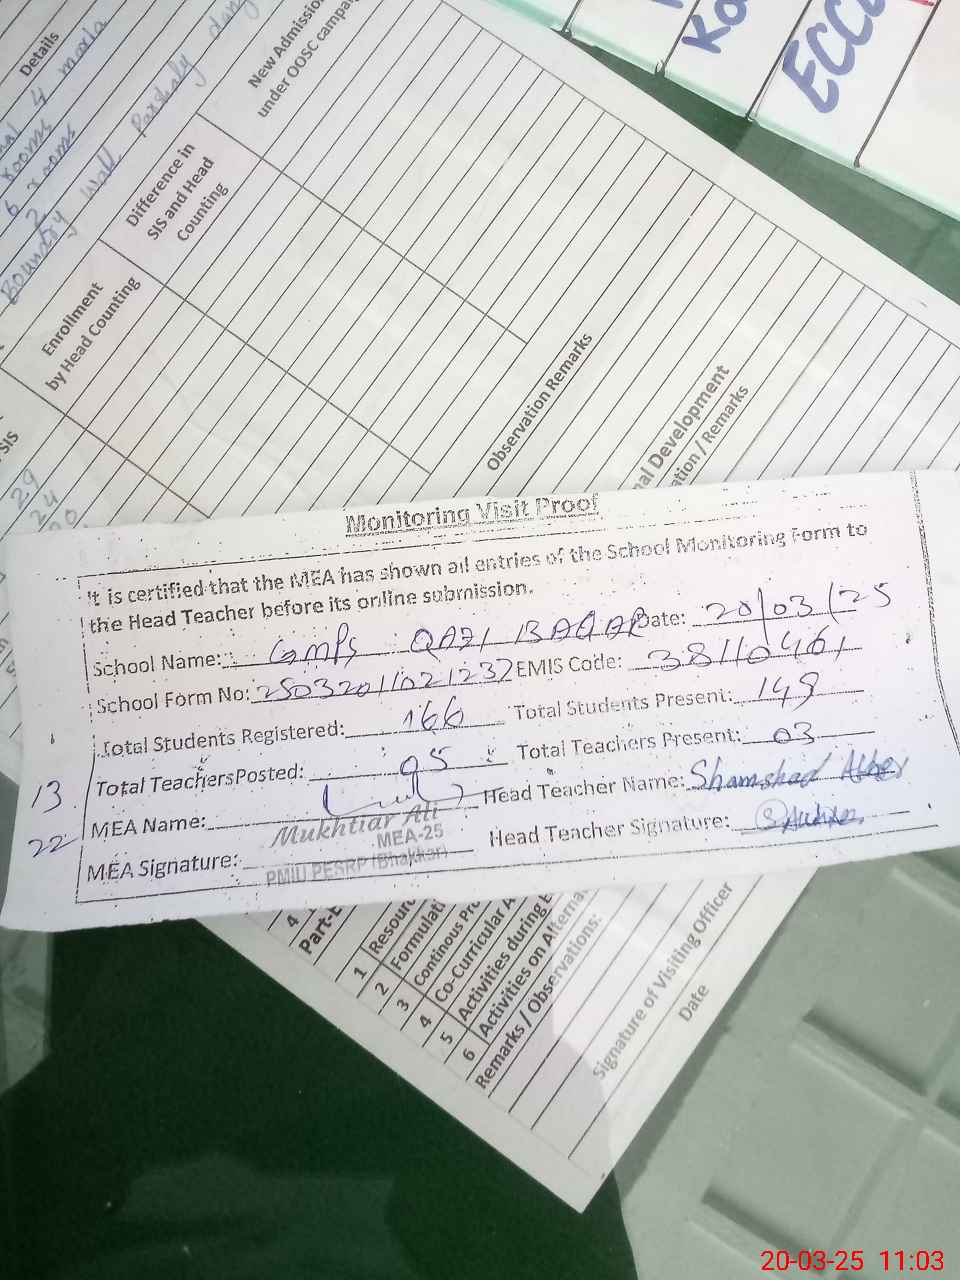 Details
4 marla
rooms
6 rooms
2
Boundry Wall Parshaly
New Admission
under OOSC campaign
Difference in
SIS and Head
Counting
Enrollment
by Head Counting
SIS
29
24
Observation Remarks
nal Development
ation / Remarks
ECCE
Monitoring Visit Proof
It is certified that the MEA has shown all entries of the School Monitoring Form to
the Head Teacher before its online submission.
School Name: GMPS QAZI BAQAR Date: 20/03/25
School Form No: 25032011021237 EMIS Code: 38110461
Total Students Registered: 166 Total Students Present: 149
Total Teachers Posted: 05 Total Teachers Present: 03
13
MEA Name: Head Teacher Name: Shamshad
22
Mukhtiar Ali
MEA-25
MEA Signature: Head Teacher Signature:
PMIU PESRP (Bhakkar)
4
Part-
1 Resour
2 Formulati
3 Continous Pro
4 Co-Curricular A
5 Activities during
6 Activities on Alterna
Remarks / Observations:
Signature of Visiting Officer
Date
20-03-25 11:03